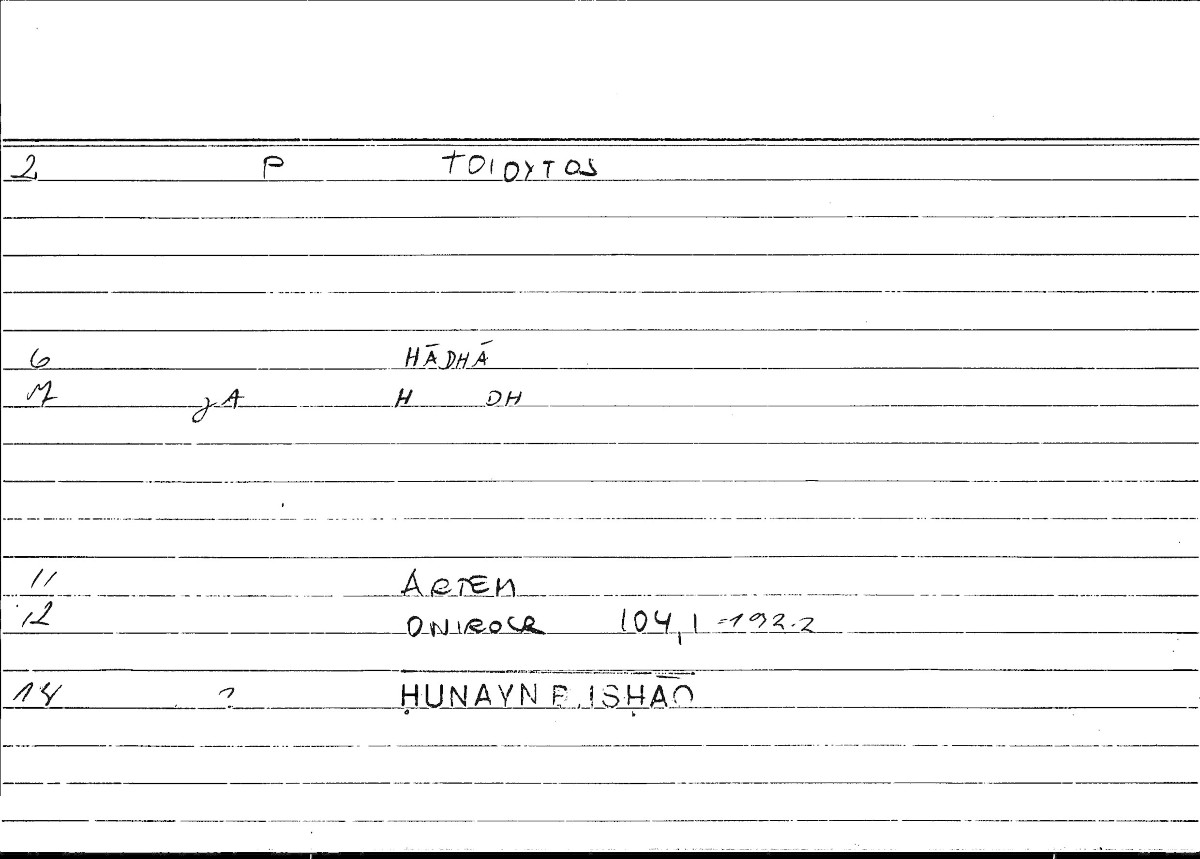 2 P ΤΟΙΟΥΤΟΣ
6 HĀDHĀ
7 jA H DH
11 ARTEM
12 ONIROCR 104,1 =192.2
18 ? ḤUNAYN B. ISḤĀQ